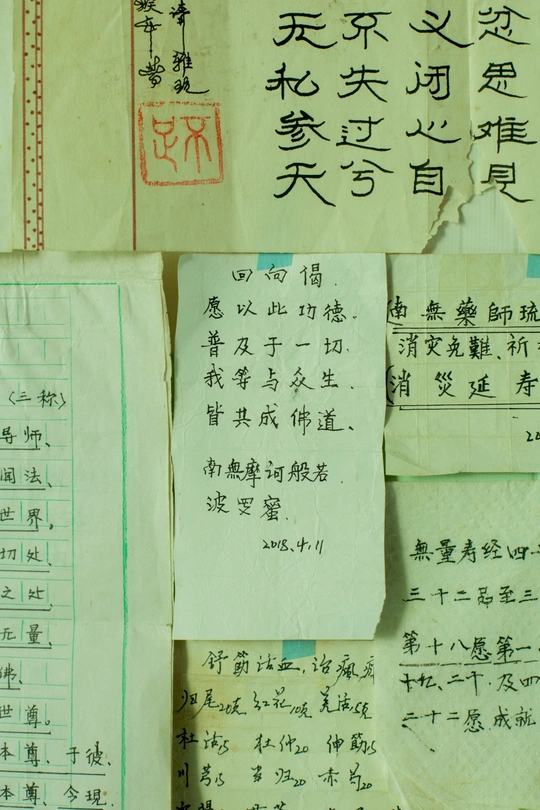 忿思难见
义闭心自
不失过兮
无私参天
〈三称〉
导师、
闻法、
世界。
切处、
之处
无量、
佛、
世尊。
本尊、于彼、
本尊、今現
回向偈.
愿以此功德.
普及于一切.
我等与众生.
皆共成佛道、
南無摩诃般若.
波罗蜜.
2018.4.11
南無藥師琉
消灾免難、祈
(消災延寿
無量寿经四
三十二品至三
第十八愿第一
十九、二十.及四
二十二愿成就
舒筋活血,治瘋
归尾20克 红花10克 羌活5克
杜仲20 伸筋5
川芎15 当归20 赤芍20